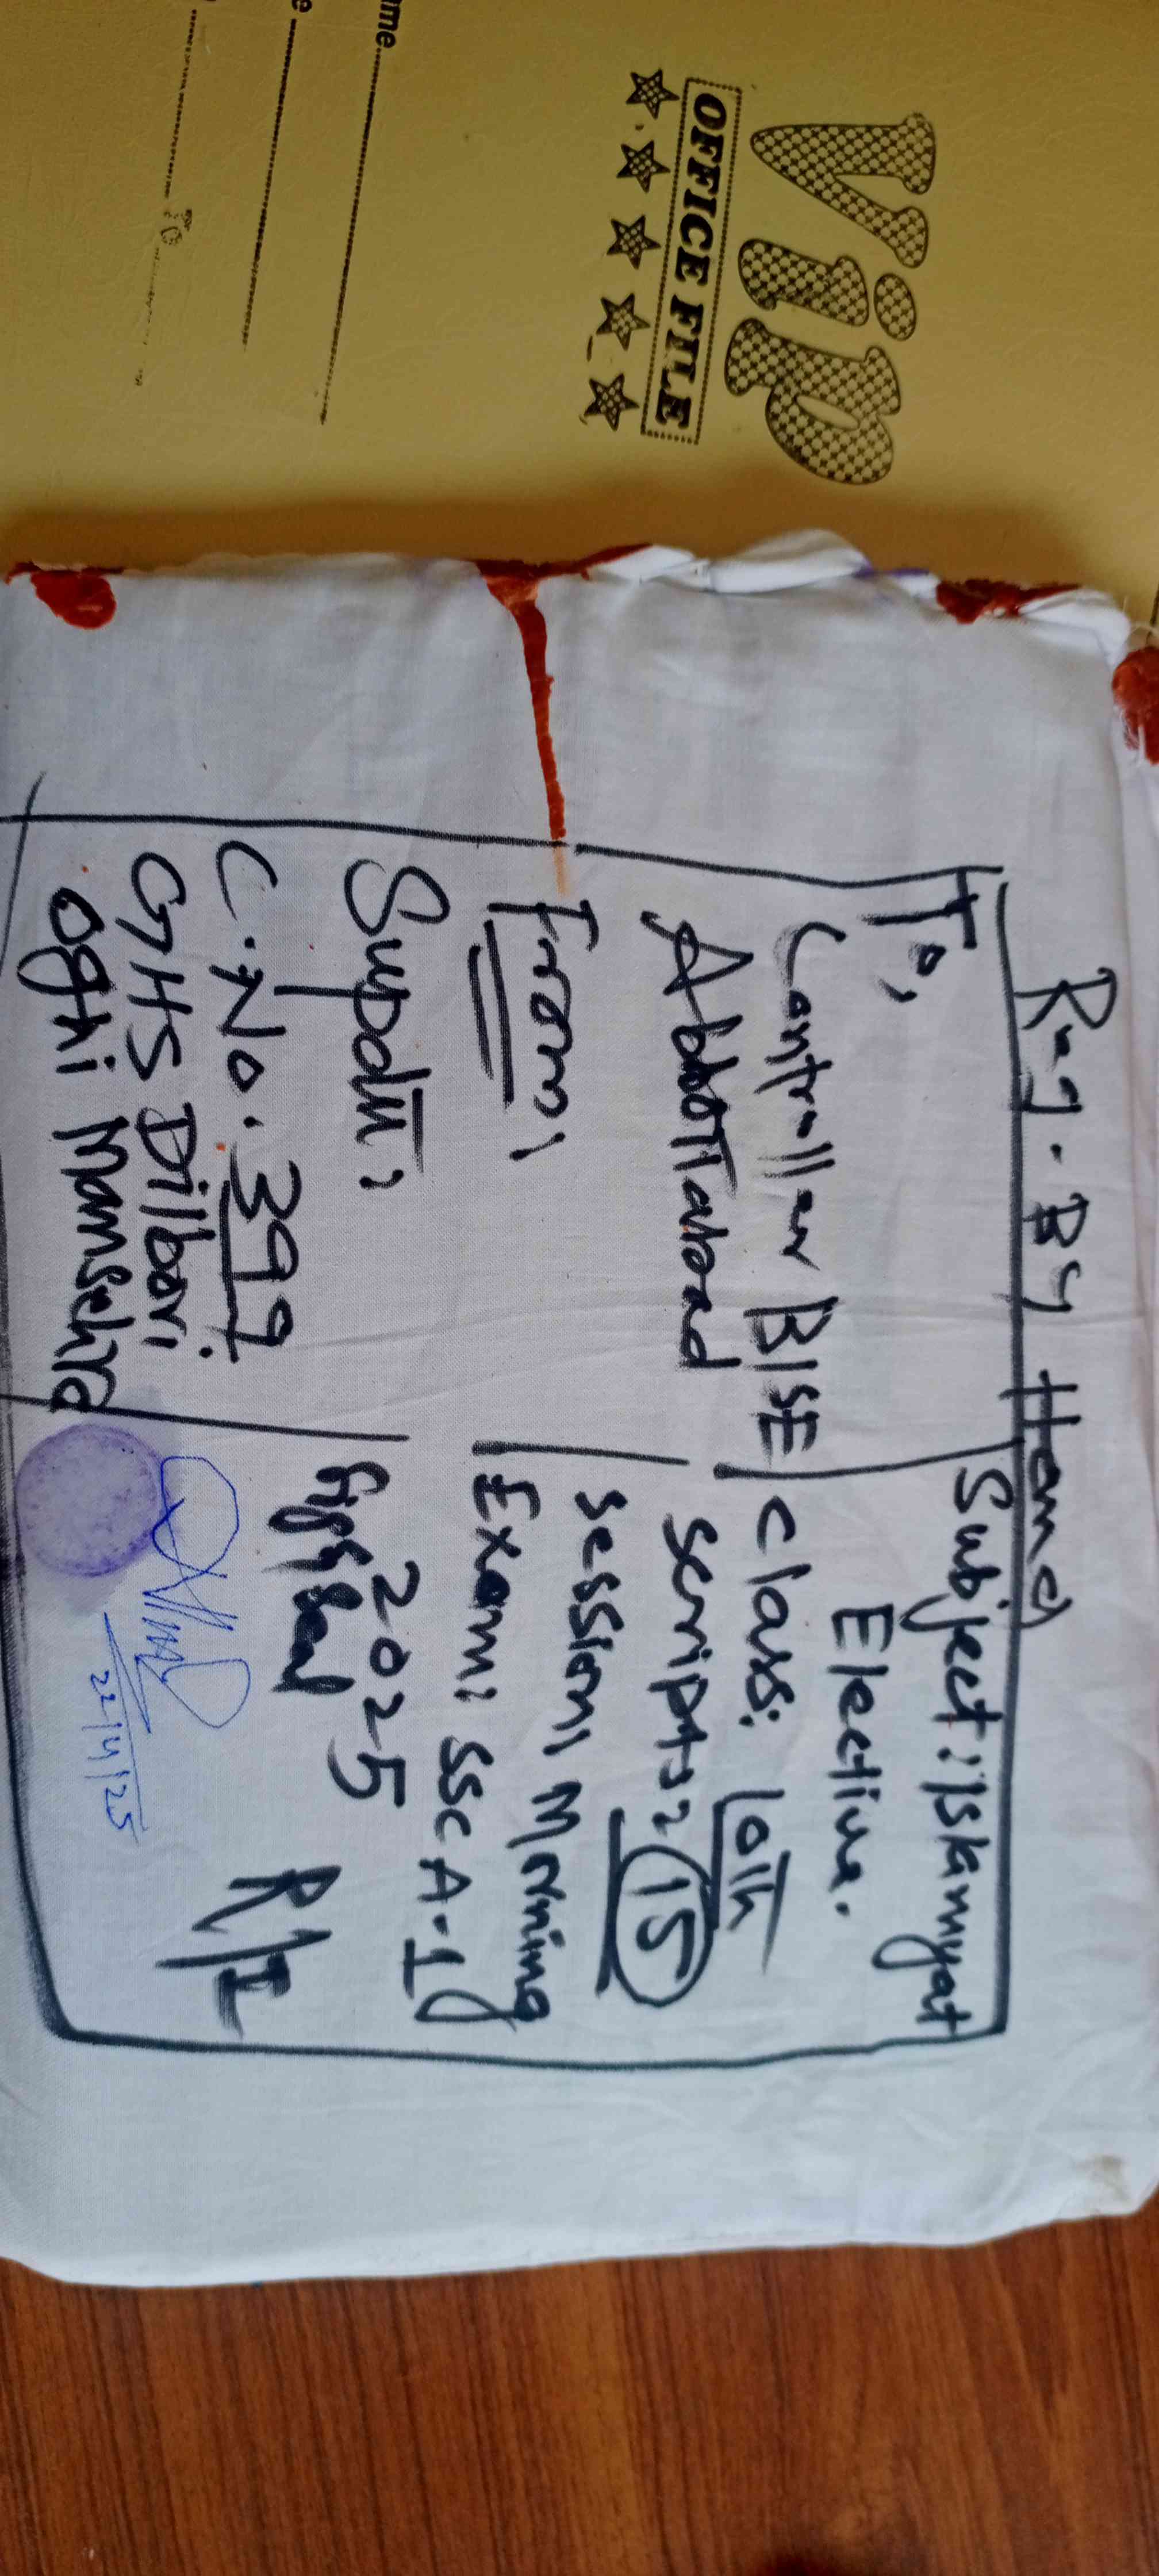 Vip
OFFICE FILE
me
e
To
R-7. By Hand
To,
Controller BISE
Abbottabad
From:
Supdtt:
C.No. 399
GHS Dilbori
Oghi Mansehra
Subject: Islamyat
Elective.
class: 10th
scripts: 15
session: Morning
Exam: SSC A-I
2025
R/I
22/4/25